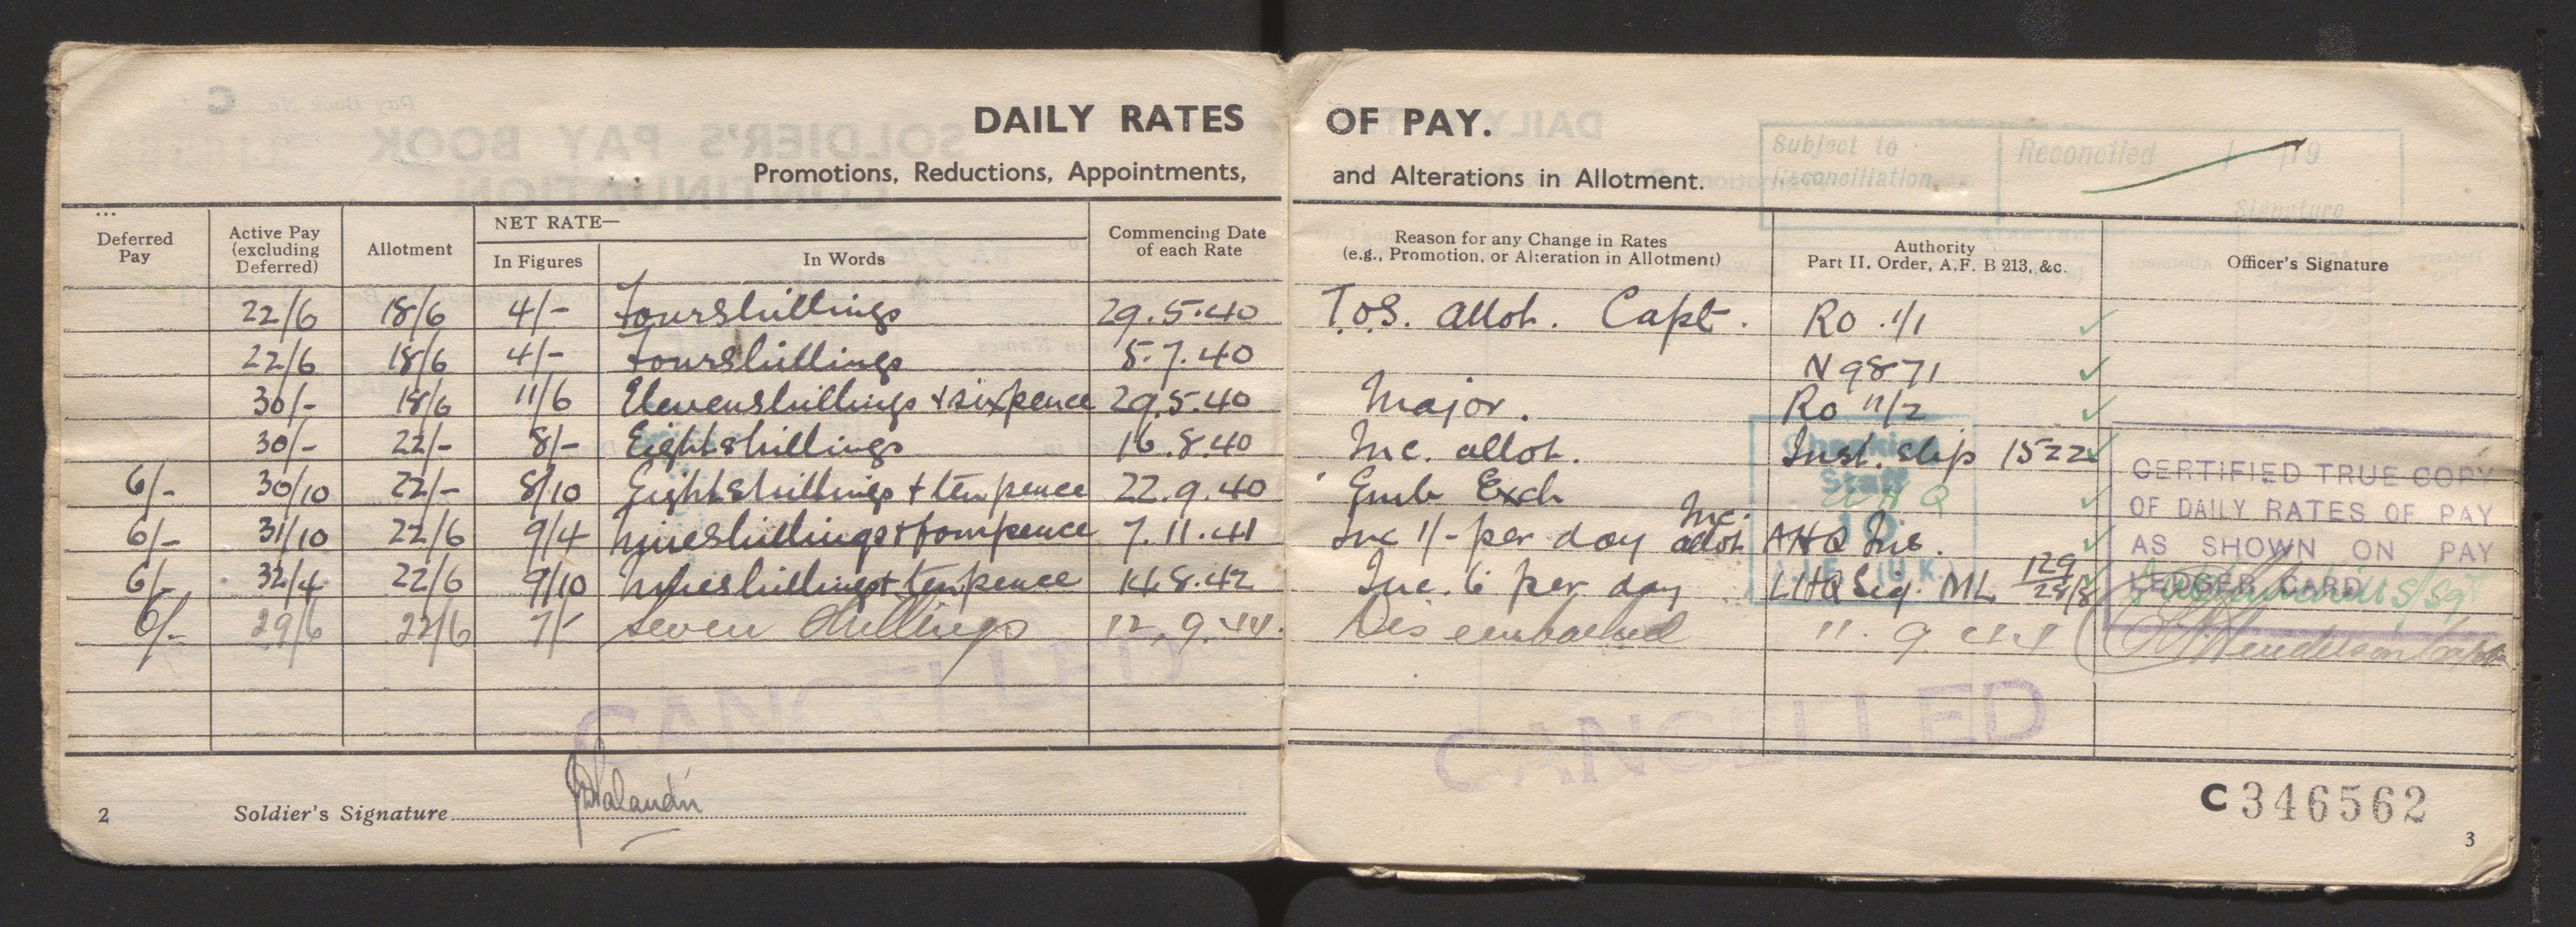 DAILY RATES OF PAY.
Promotions, Reductions, Appointments, and Alterations in Allotment.
Subject to Reconciliation.
Reconciled / /19
Signature
Deferred Pay
Active Pay (excluding Deferred)
Allotment
NET RATE—
In Figures
In Words
Commencing Date of each Rate
Reason for any Change in Rates (e.g., Promotion, or Alteration in Allotment)
Authority Part II. Order, A.F. B 213, &c.
Officer's Signature
22/6 18/6 4/- four shillings 29.5.40 T.O.S. allot. Capt. RO 1/1
22/6 18/6 4/- four shillings 5.7.40 N 9871
30/- 18/6 11/6 Eleven shillings & sixpence 29.5.40 Major. RO 11/2
30/- 22/- 8/- Eight shillings 16.8.40 Inc. allot. Inst. slip 1522
6/- 30/10 22/- 8/10 Eight shillings + ten pence 22.9.40 Emb Exch AHQ
6/- 31/10 22/6 9/4 nine shillings + four pence 7.11.41 Inc 1/- per day Inc. allot AHQ Ins.
6/- 32/4 22/6 9/10 nine shillings + ten pence 14.8.42 Inc. 6 per day LHQ Sig. ML 129 28/8
6/- 29/6 22/6 7/- seven shillings 12.9.44. Disembarked 11.9.44 Henderson Capt
CERTIFIED TRUE COPY
OF DAILY RATES OF PAY
AS SHOWN ON PAY
LEDGER CARD
S/Sgt
Checking
Staff
A.I.F. (U.K.)
CANCELLED
CANCELLED
2 Soldier's Signature
C346562
3